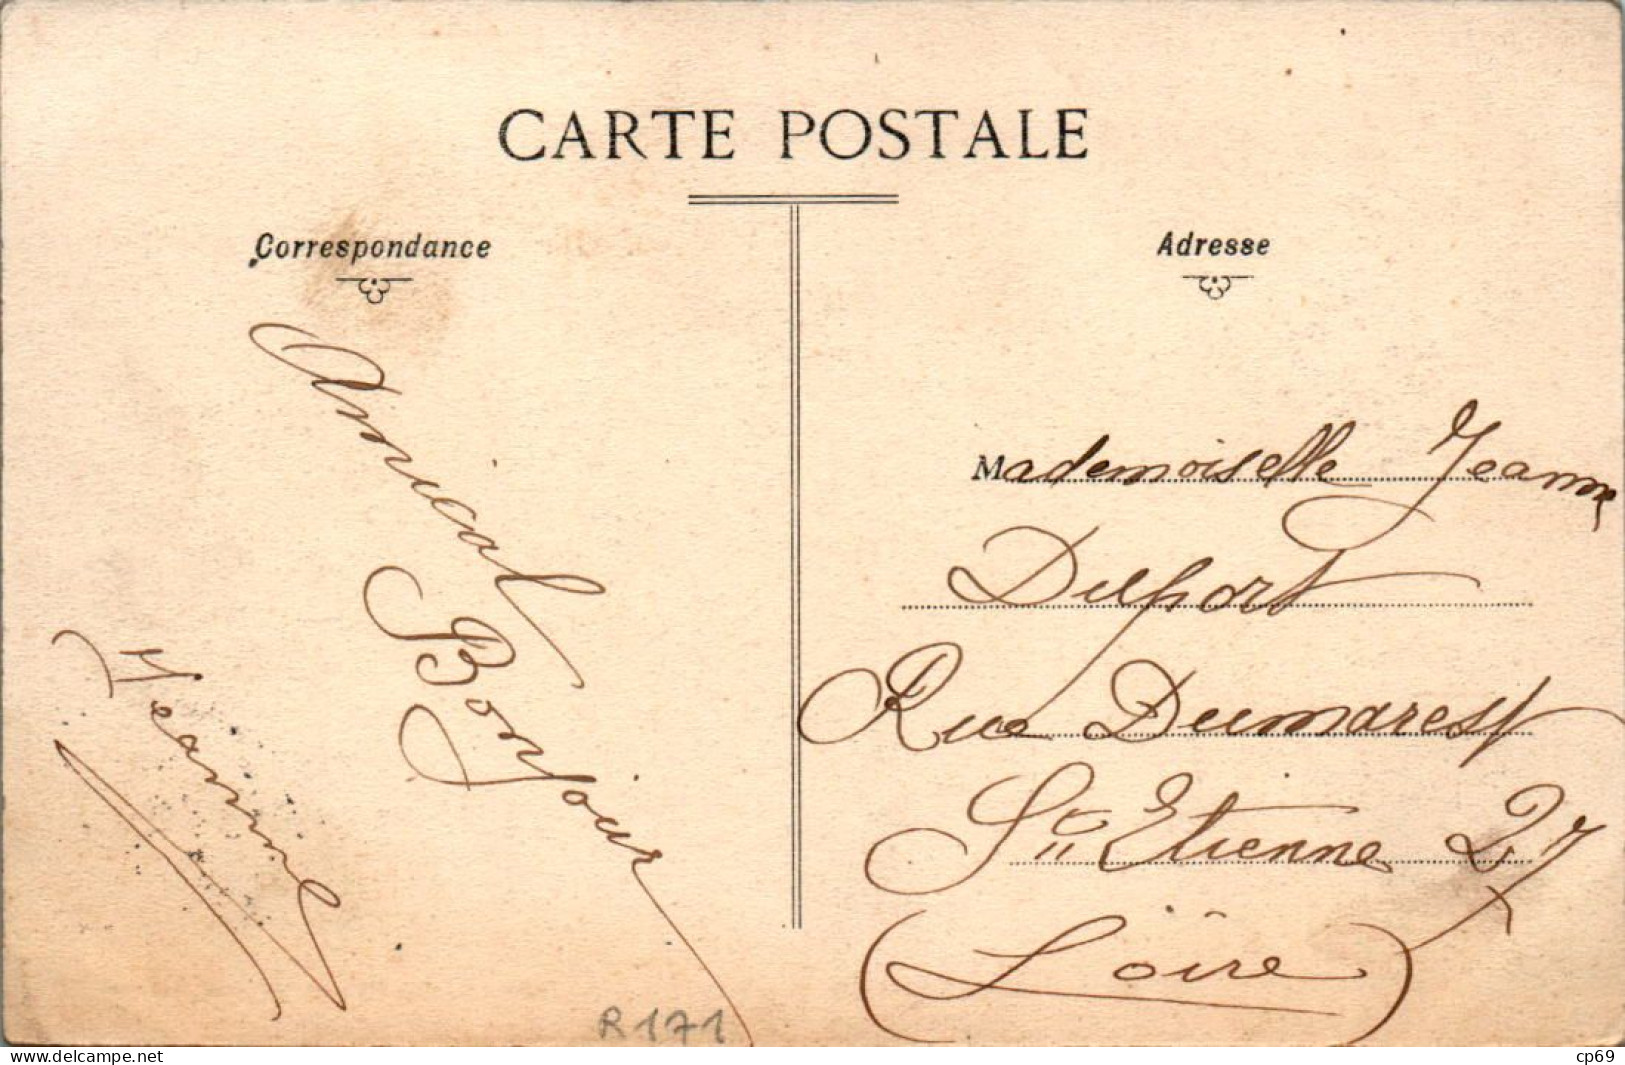 CARTE POSTALE
Correspondance
Amical
Bonjour
Jeanne
Adresse
Mademoiselle Jeanne
Duport
Rue Dumarest
St Etienne 27
(Loire)
R171
www.delcampe.net
cp69